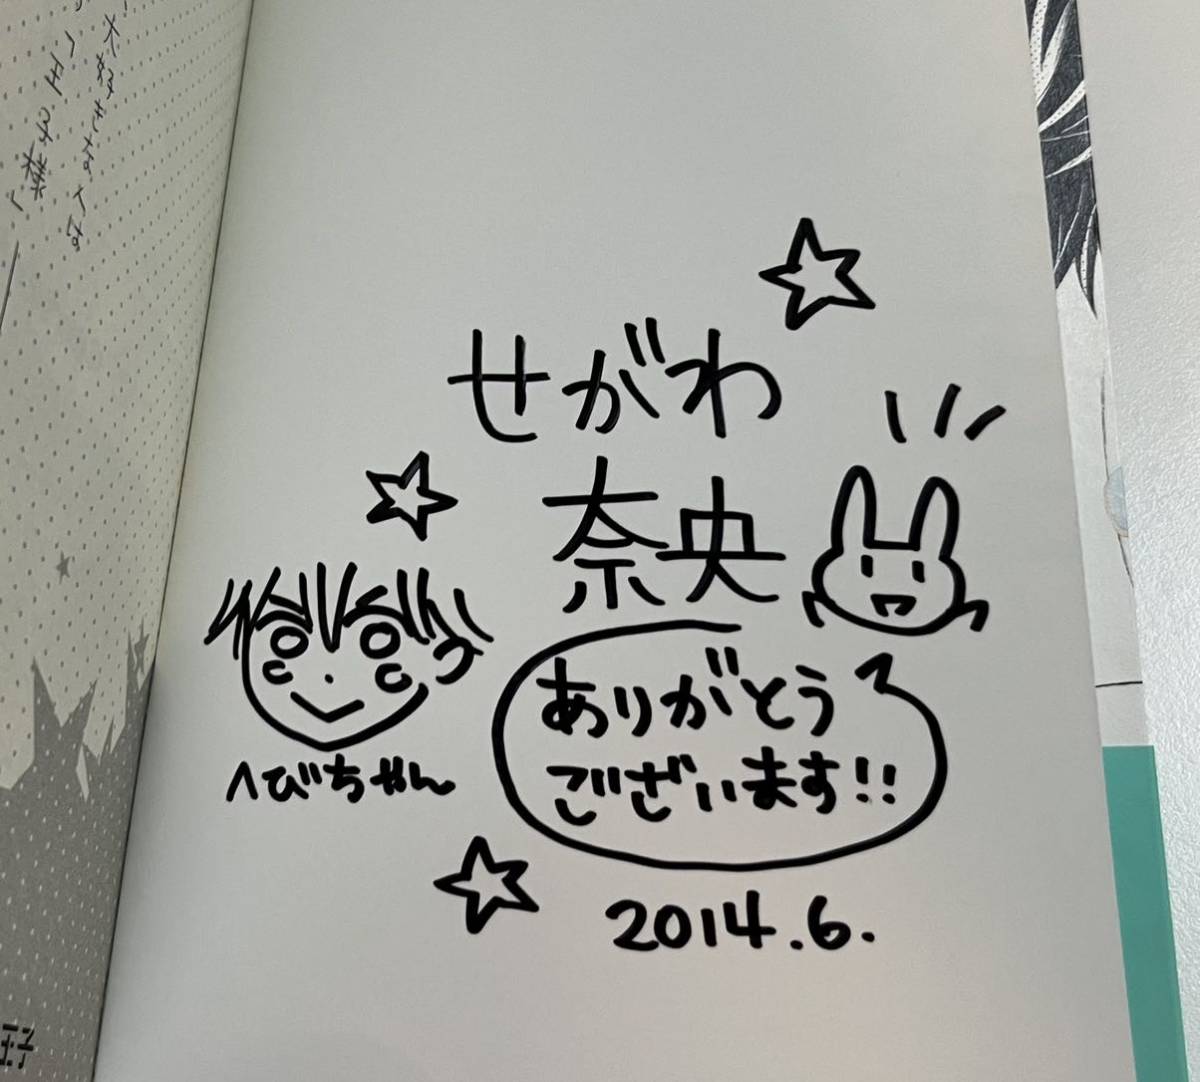 せがわ
奈央
ありがとう
ございます!!
へびちゃん
2014.6.
王子